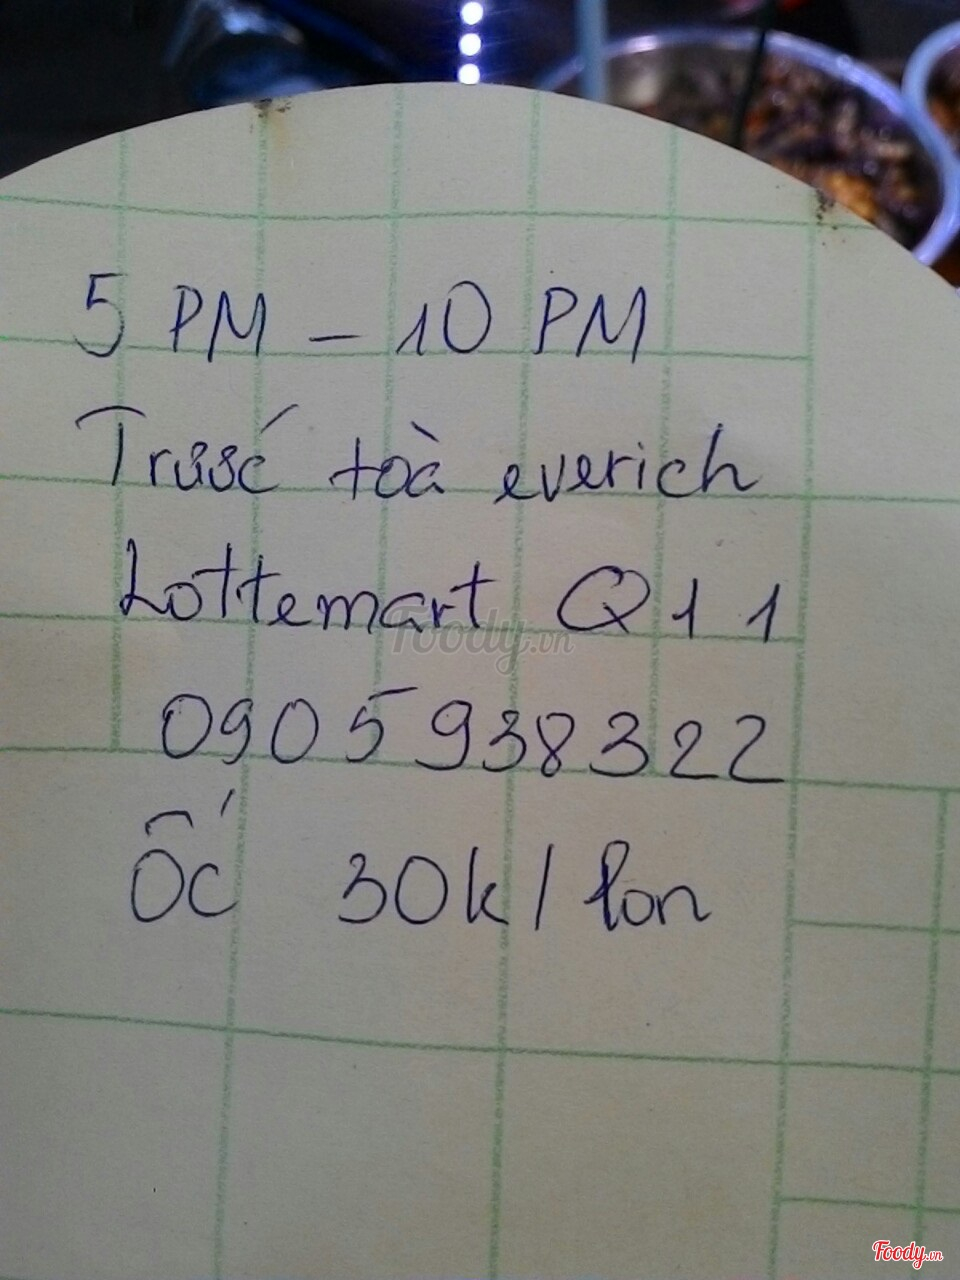 5 PM - 10 PM
Trước toà everich
Lottemart Q11
0905938322
Ốc 30k/lon
Foody.vn
Foody.vn